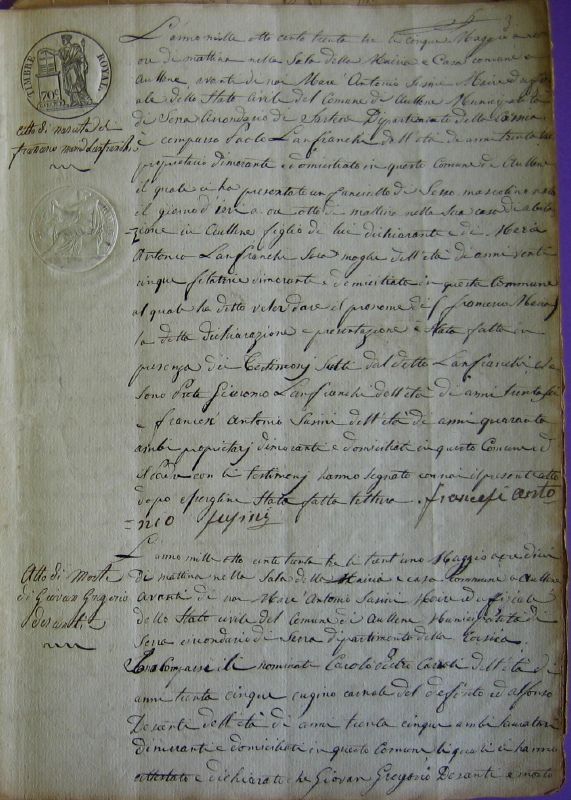 TIMBRE ROYAL
70 c
L'anno mille otto cento trenta tre li cinque Maggio a
ore di mattina nella Sala della Mairia e Casa comune a
Aullene avanti di noi Mare' Antonio Susini Maire
dello Stato Civile del Comune di Aullene Municipalità
di Serra Circondario di Sartene Dipartimento della Corsica
Atto di nascita di
francesco maria Lanfranchi
è comparso Paolo Lanfranchi dell'età di anni trenta
proprietario dimorante e domiciliato in questo Comune di Aullene
il quale ci ha presentato un fanciullo di Sesso mascolino nato
il giorno d'ieri a ore otto di mattina nella Sua casa di abita
zione in Aullene figlio di lui dichiarante e di Maria
Antonia Lanfranchi Sua moglie dell'età di anni venti
cinque filatrice dimorante e domiciliata in questa Commune
al quale ha detto voler dare il pronome di francesco Maria
la detta dichiarazione e presentazione è Stata fatta in
presenza di Testimonj dal detto Lanfranchi che
sono Prete Giacomo Lanfranchi dell'età di anni trenta
e francesco Antonio Susini dell'età di anni quaranta
ambi proprietarj dimoranti e domiciliati in questo Comune
con li testimonj hanno segnato con noi il presente atto
dopo Stata fatta lettura. francesco anto
=nio susini
L'anno mille otto cento trenta tre li trent'uno Maggio a ore dieci
Atto di Morte
di Giovan Gregorio
Desanti
di mattina nella Sala della Mairia e casa Commune a Aullene
Avanti di noi Mare' Antonio Susini Maire ed ufficiale
dello Stato civile del Comune di Aullene Municipalità di
Serra circondario di Dipartimento della Corsica
Sono Comparsi li nominati Carolo dell'età di
anni trenta cinque cugino carnale del defonto ed alfonso
Desanti dell'età di anni trenta cinque ambi lavoratori
dimoranti e domiciliati in questo Comune li quali ci hanno
e dichiarato che Giovan Gregorio Desanti è morto